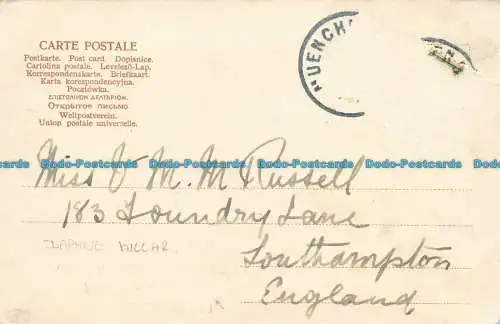 CARTE POSTALE
Postkarte. Post card. Dopisnice.
Cartolina postale. Levelező-Lap.
Korrespondenskarte. Briefkaart.
Karta korespondencyjna.
Pocztówka.
ΕΠΙΣΤΟΛΙΚΟΝ ΔΕΛΤΑΡΙΟΝ.
Открытое письмо
Weltpostverein.
Union postale universelle.
MUENCH
Miss J M. M Russell
183 Foundry Lane
Southampton
England
DAPHNE MILLAR
Dodo-Postcards Dodo-Postcards Dodo-Postcards Dodo-Postcards